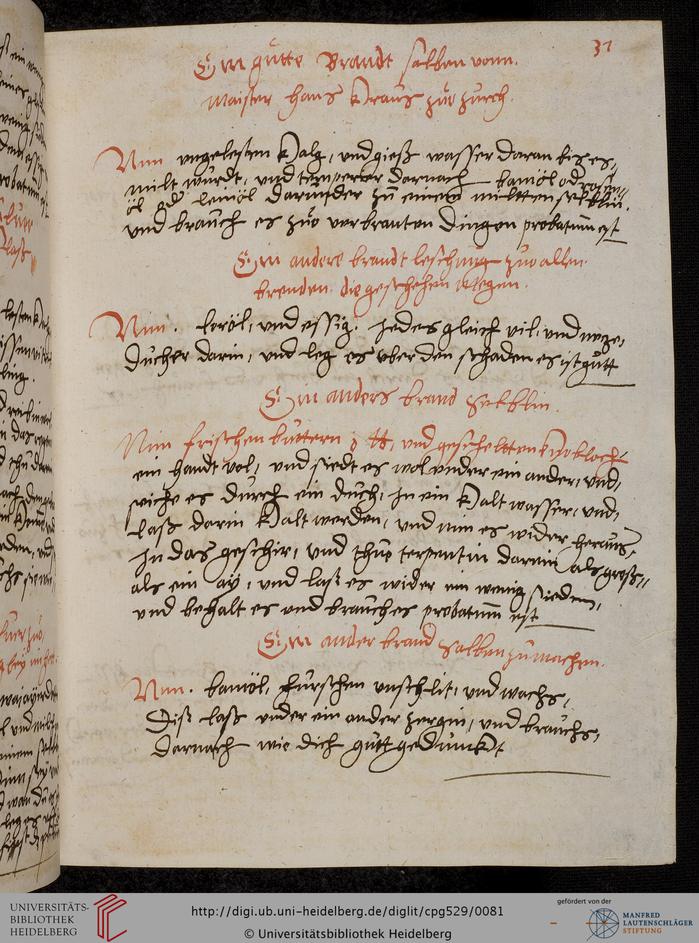 37
Ein gůtte Brandt salben vonn
maister hans Kraus zůo zurch.
Nim vngelesten Kalg, vnd gieß wasser daran bis es
milt wurdt, vnd temperier darnach bamöl od rosen
öl od leinöl darunder zu einem
vnd brauch es zůo verbranten dingen probatum est
Ein andere brandt leschung zuo allen
brenden die geschehen megen.
Nim. loröl, vnd essig. Jedes gleich vil, vnd neze
ducher darin, vnd leg es vber den schaden es ist gůtt
Ein anders brand selblin.
Nim frischen buttern vnd gescheltten knobloch
ein handt vol, vnd siedt es wol vnder ein ander, vnd
seiche es durch ein duch, in ein Kalt wasser, vnd
laß darin Kalt werden, vnd nim es wider heraus
in das geschir, vnd thuo terpentin darein als groß
als ein ay, vnd laß es wider ein wenig sieden,
vnd behalt es vnd brauch es probatum est
Ein ander brand salben zu machen.
Nim. bamöl, hürschen vnschlit, vnd wachs,
Diß laß vnder ein ander zergin, vnd brauchs,
darnach wie dich gůtt gedunckt
UNIVERSITÄTS-
BIBLIOTHEK
HEIDELBERG
http://digi.ub.uni-heidelberg.de/diglit/cpg529/0081
© Universitätsbibliothek Heidelberg
gefördert von der
MANFRED
LAUTENSCHLÄGER
STIFTUNG